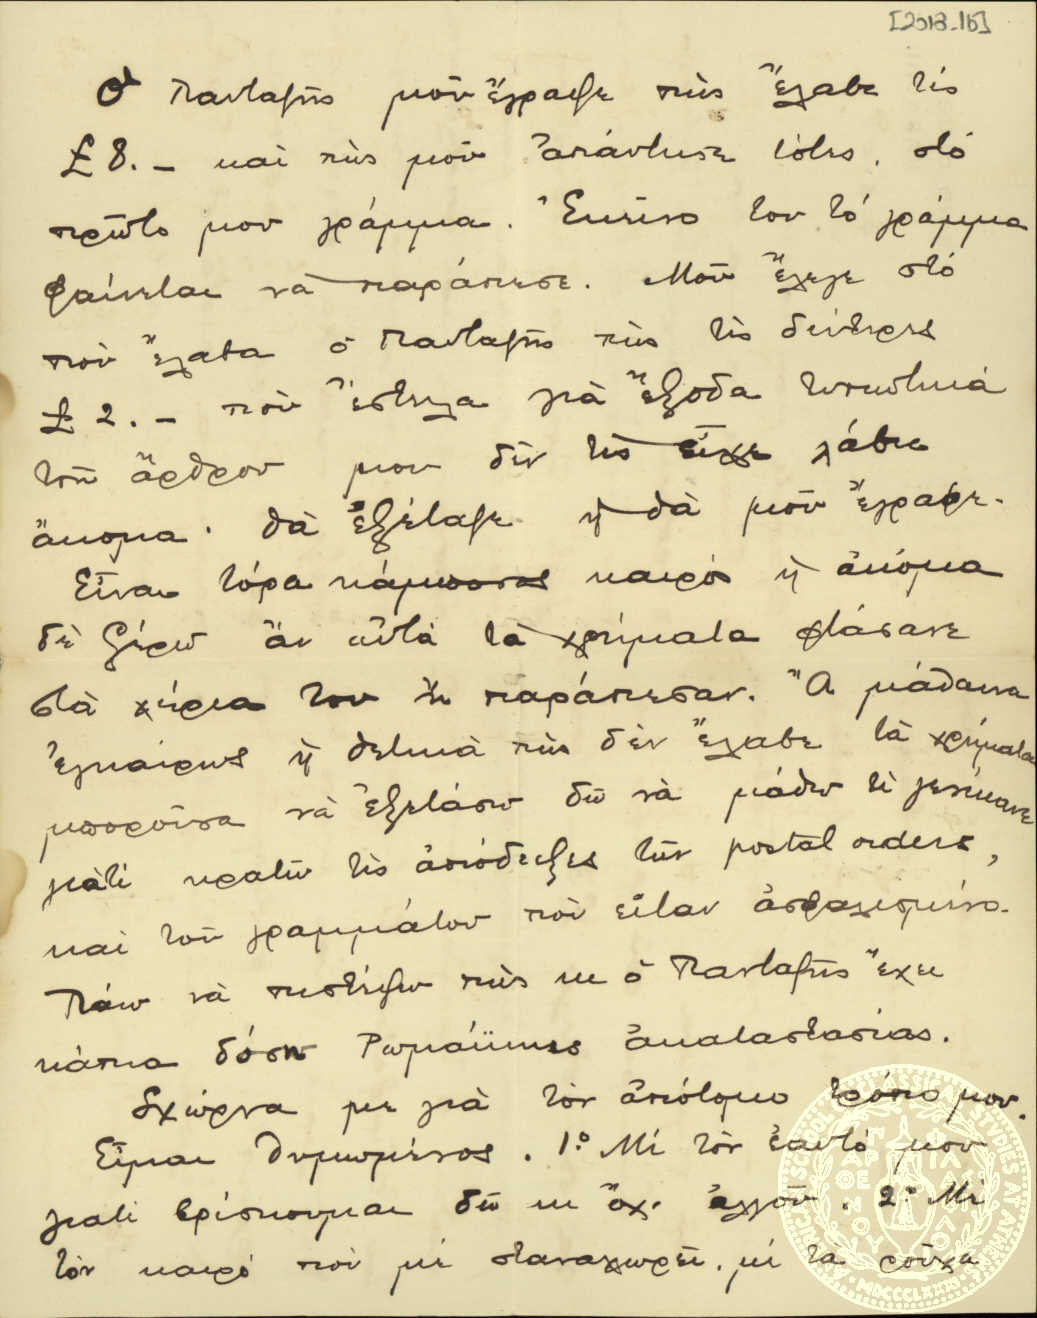 [2018-1b]
Ὁ Πανταζῆς μοῦ ἔγραψε πὼς ἔλαβε τὶς
£ 8. – καὶ πὼς μοῦ ἀπάντησε τότες, στὸ
πρῶτο μου γράμμα. Ἐκεῖνο του τὸ γράμμα
φαίνεται νὰ παράπεσε. Μοῦ ἔλεγε στὸ
ποὺ ἔλαβα ὁ Πανταζῆς πὼς τὶς δεύτερες
£ 2. – ποὺ ἔστειλα γιὰ ἔξοδα τυπωτικὰ
τοῦ ἄρθρου μου δὲν τὶς εἶχε λάβει
ἄκομα. Θὰ ἐξέταζε κῂ θὰ μοῦ ἔγραφε.
Εἶναι τόρα κάμποσος καιρὸς κῂ ἀκόμα
δὲ ξέρω ἂν αὐτὰ τὰ χρήματα φτάσανε
στὰ χέρια του ἢ παράπεσαν. Ἂ μάθαινα
ἐγκαίρως κῂ θετικὰ πὼς δὲν ἔλαβε τὰ χρήματα
μποροῦσα νὰ ἐξετάσω δῶ νὰ μάθω τὶ γενήκανε
γιατὶ κρατῶ τὶς ἀπόδειξες τῶν postal orders,
καὶ τοῦ γραμμάτου ποὺ εἶταν ἀσφαλισμένο.
Πάω νὰ πιστέψω πὼς κι ὁ Πανταζῆς ἔχει
κάπια δόση Ρωμαίικης ἀκαταστασίας.
Σχώρνα με γιὰ τὸν ἀπότομο τρόπο μου.
Εἶμαι θυμωμένος. 1º Μὲ τὸν ἑαυτό μου
γιατὶ βρίσκουμαι δῶ κι ὄχι ἀλλοῦ. 2º Μὲ
τὸν καιρὸ ποὺ μὲ σταναχωρεῖ, μὲ τὰ ροῦχα